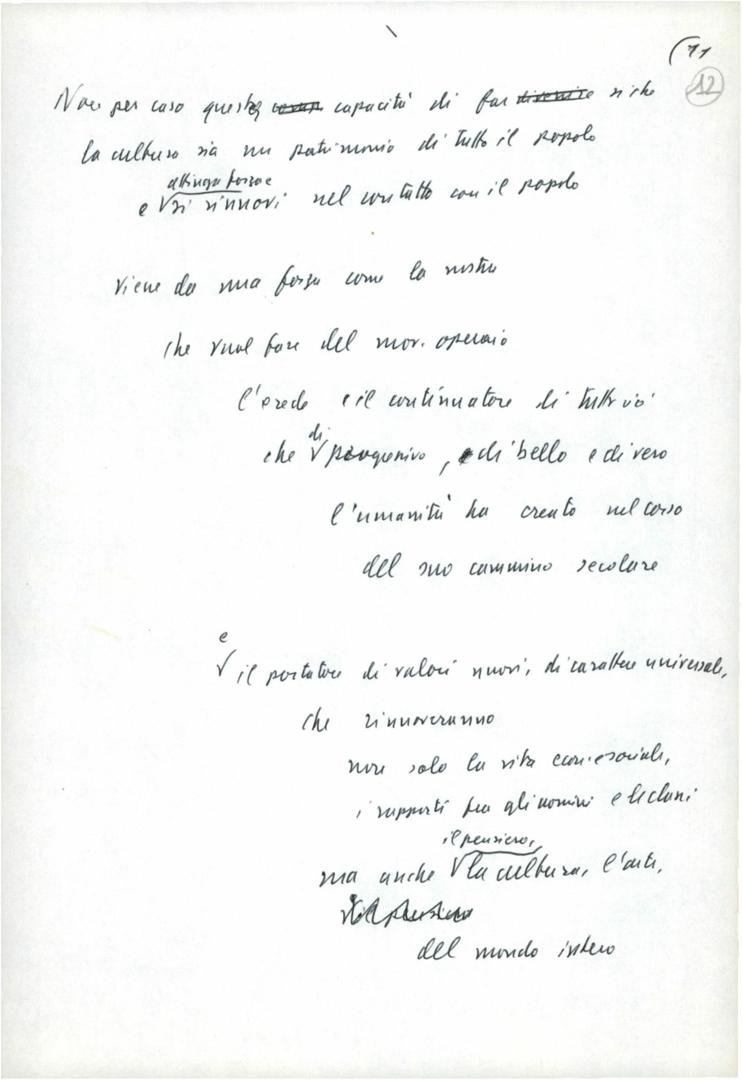 (11
12
Non per caso questa capacità di far sì che
la cultura sia un patrimonio di tutto il popolo
attinga forza e
e si rinnovi nel contatto con il popolo
viene da una forza come la nostra
che vuol fare del mov. operaio
l'erede e il continuatore di tutto ciò
di
che progressivo, di bello e di vero
l'umanità ha creato nel corso
del suo cammino secolare
e
il portatore di valori nuovi, di carattere universale,
che rinnoveranno
non solo la vita econ. e sociale,
i rapporti fra gli uomini e le classi
il pensiero,
ma anche la cultura, l'arte,
il pensiero
del mondo intero